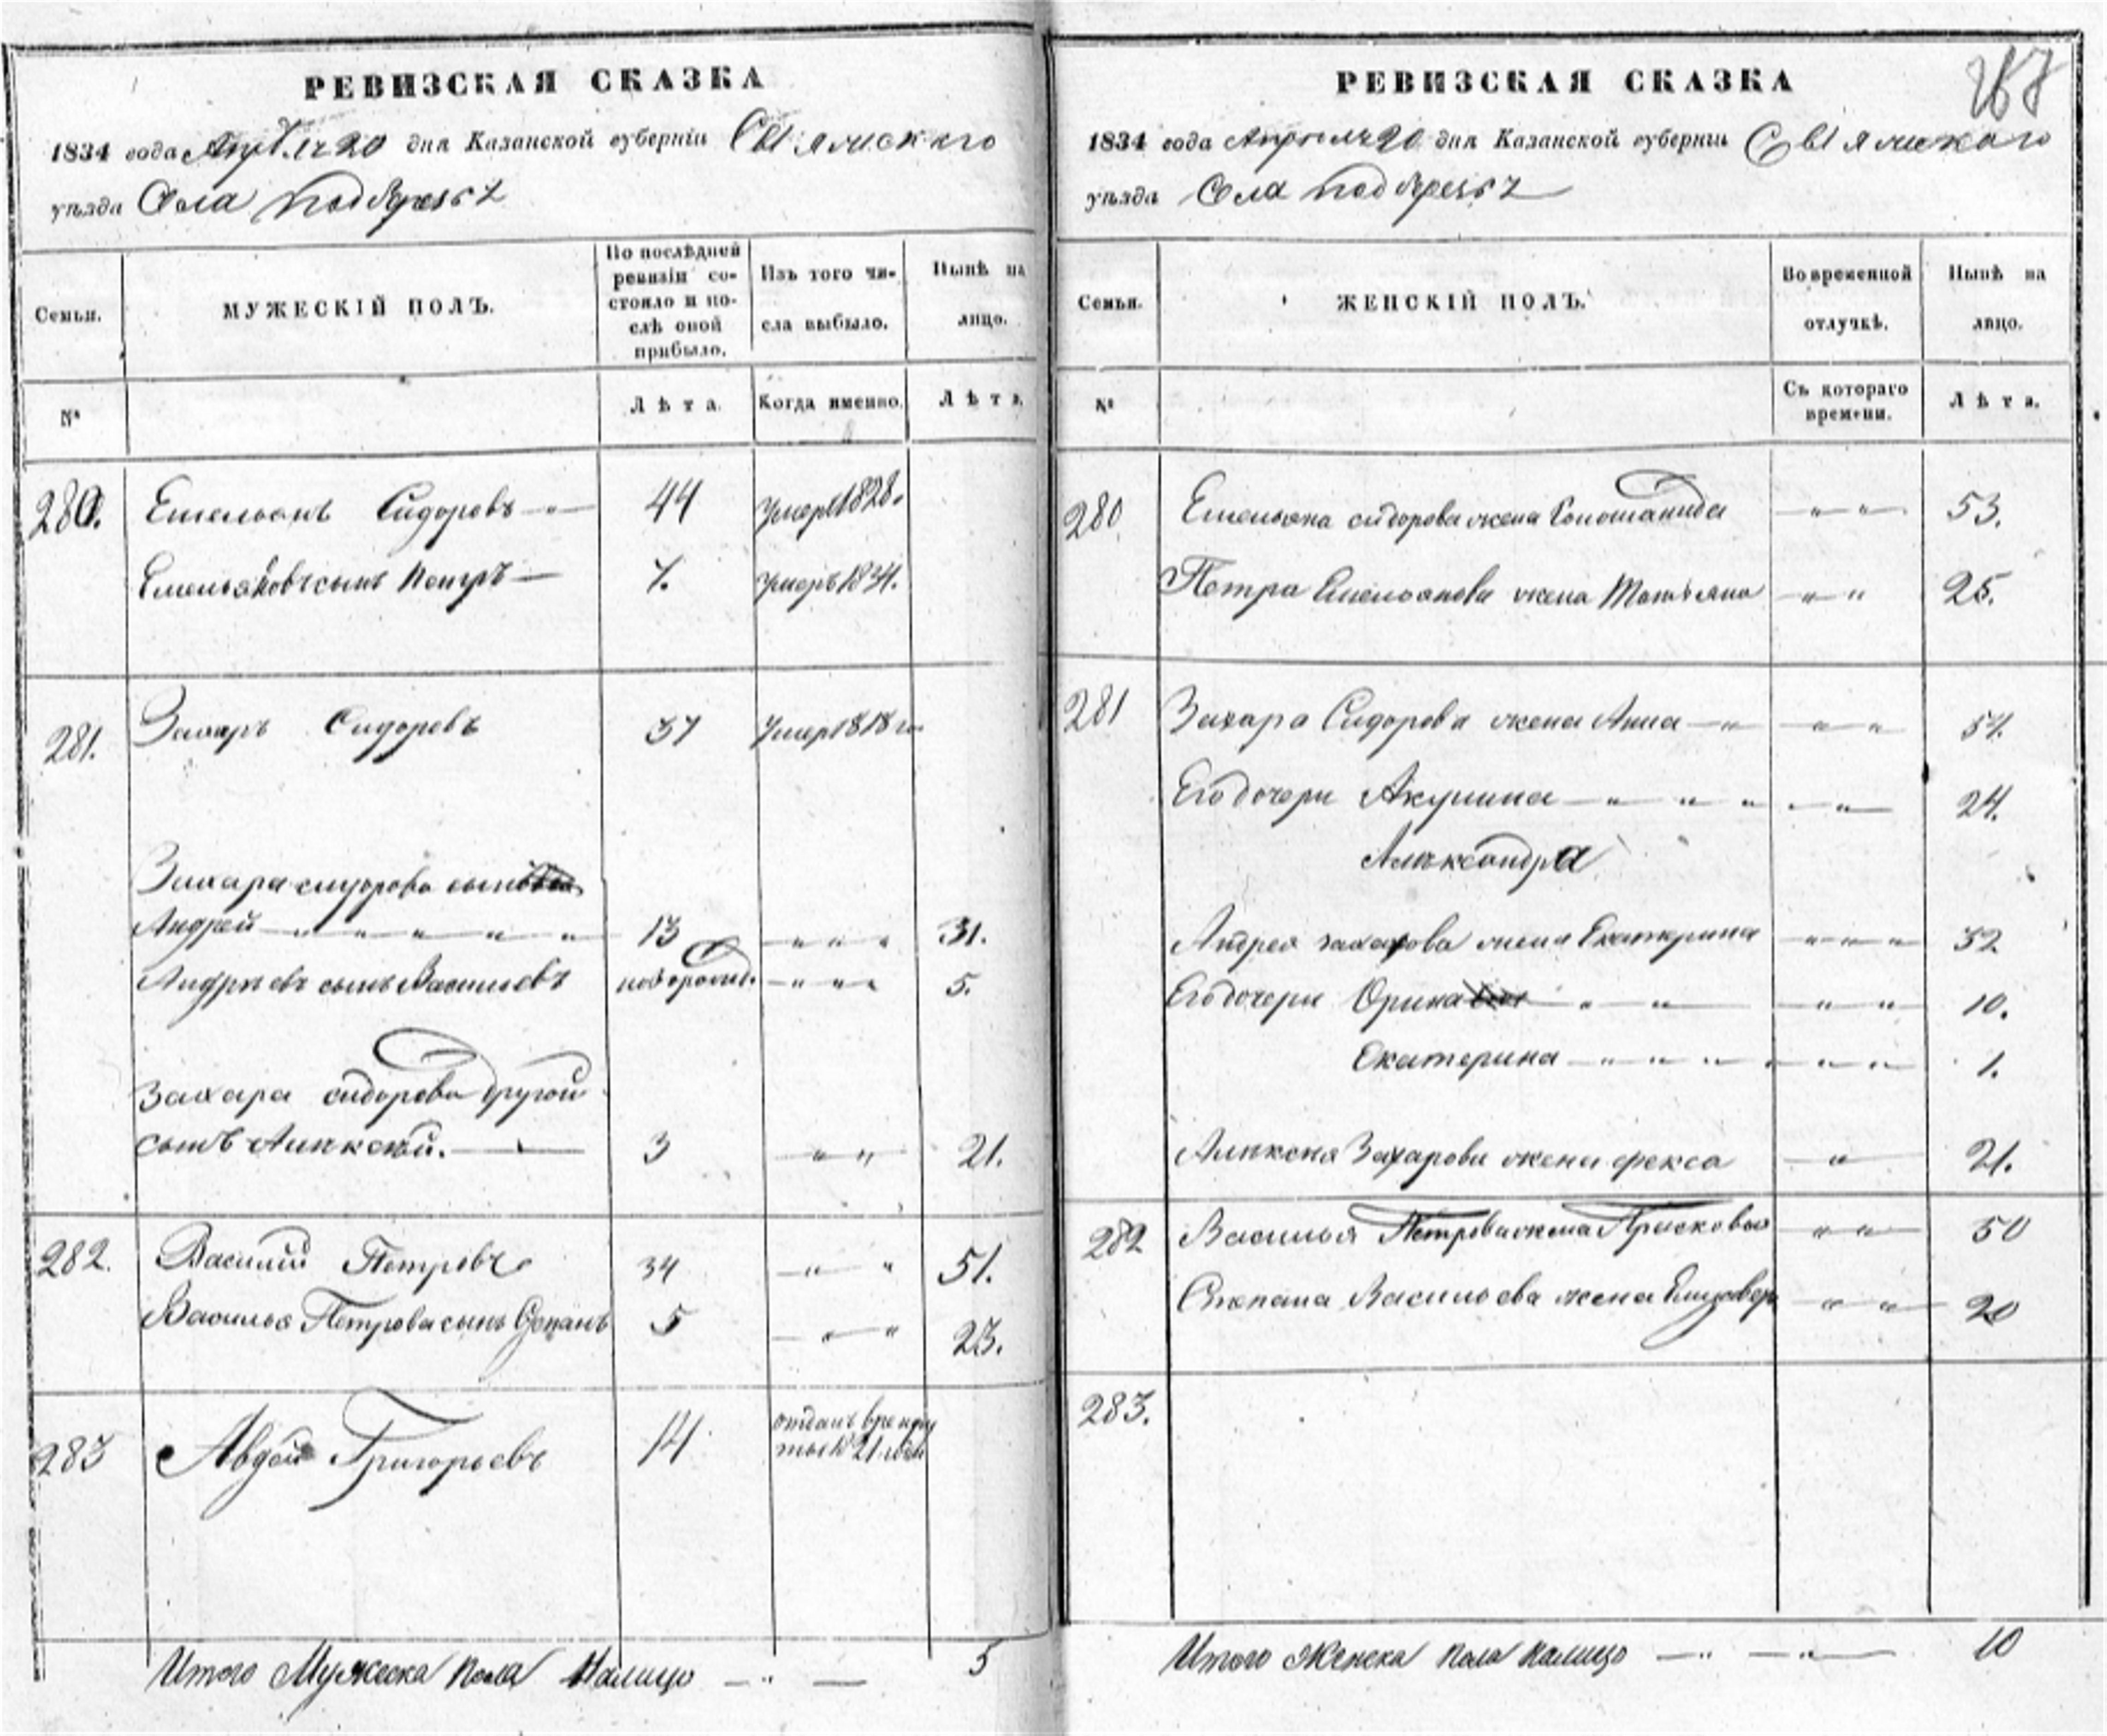 РЕВИЗСКАЯ СКАЗКА
1834 года Апреля 20 дня Казанской губернiи Свiяжскаго
уѣзда Села Подберезья
Семьи.
МУЖЕСКIЙ ПОЛЪ.
По послѣдней ревизiи со-
стояло и по-
слѣ оной
прибыло.
Изъ того чи-
сла выбыло.
Нынѣ на
лицо.
№
Лѣта.
Когда именно.
Лѣта.
280. Емельянъ Сидоровъ 44 умеръ 1828.
Емельяновъ сынъ Петръ 7. умеръ 1834.
281. Захаръ Сидоровъ 37 Умеръ 1818 го
Захара сидорова сынъ
Андрей 13 31.
Андреевъ сынъ Василевъ новорожд. 5.
Захара сидорова другой
сынъ Алексѣй. 3 21.
282. Василий Петровъ 34 51.
Василья Петрова сынъ Степанъ 5 23.
283 Авдей Григорьевъ 14 отданъ в рекру
ты въ 21 годе
Итого Мужеска пола Налицо 5
РЕВИЗСКАЯ СКАЗКА
1834 года Апреля 20 дня Казанской губернiи Свiяжскаго
уѣзда Села Подберезья
Семьи.
ЖЕНСКIЙ ПОЛЪ.
Во временной
отлучкѣ.
Нынѣ на
лицо.
№
Съ котораго
времени.
Лѣта.
280 Емельяна сидорова жена 53.
Петра Емельянова жена Татьяна 25.
281 Захара Сидорова жена Анна 54.
Его дочери Акулина 24.
Александра
Андрея захарова жена Екатерина 32
Его дочери Орина 10.
Екатерина 1.
Алексея Захарова жена фекса 21.
282 Василья Петрова жена Прасковья 50
Степана Васильева жена Елизавер 20
283.
Итого Женска пола налицо 10